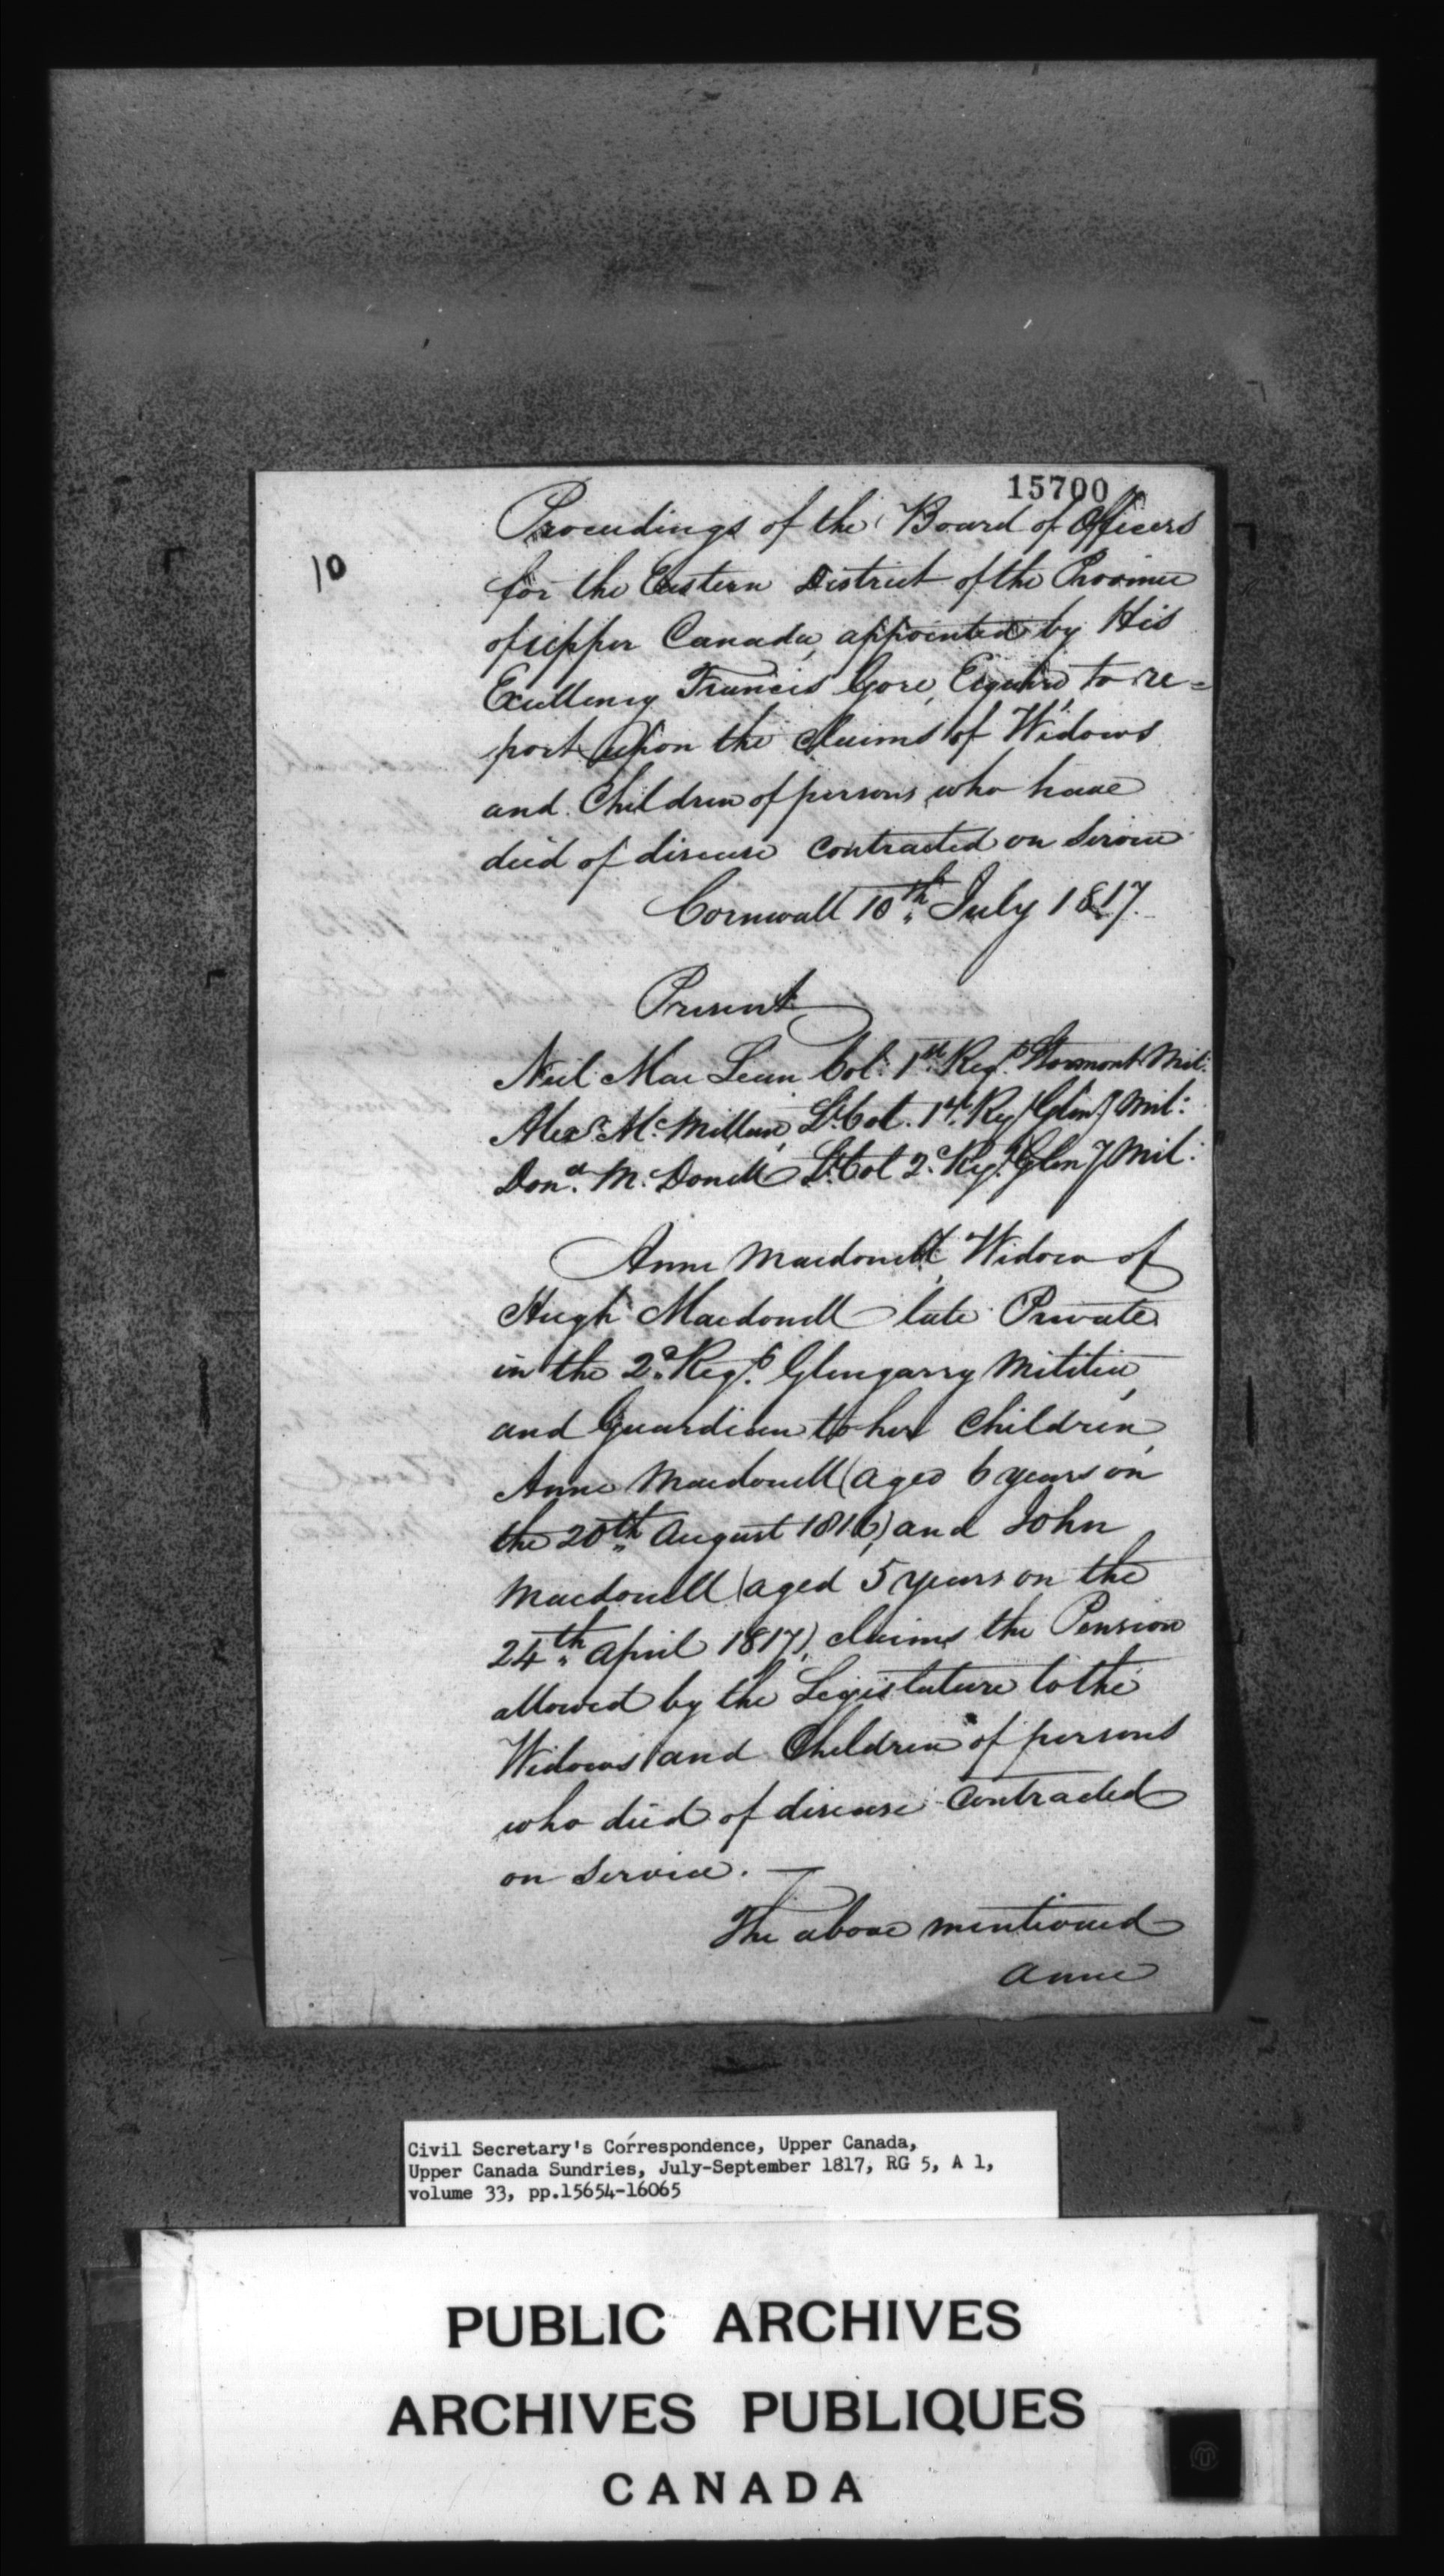 15700
10
Proceedings of the Board of Officers
for the Eastern District of the Province
of upper Canada, appointed by His
Excellency Francis Gore, Esquire, to re=
port upon the claims of Widows
and Children of persons who have
died of disease contracted on Service
Cornwall 10th July 1817.
Present
Neil Mac Lean Col: 1st Regt. Stormont Mil:
Alexr. Mc.Millan, Lt. Col. 1st. Rg. Glengy Mil:
Dond. Mc.Donell Lt. Col 2d. Rgt. Glengy Mil:
Anne Macdonell, Widow of
Hugh Macdonell late Private
in the 2d. Regt. Glengarry Militia,
and Guardian to her Children,
Anne Macdonell (aged 6 years on
the 20th August 1816) and John
Macdonell (aged 5 years on the
24th April 1817), claims the Pension
allowed by the Legislature to the
Widows and Children of persons
who died of disease contracted
on Service. —
The above mentioned
Anne
Civil Secretary's Correspondence, Upper Canada,
Upper Canada Sundries, July-September 1817, RG 5, A 1,
volume 33, pp.15654-16065
PUBLIC ARCHIVES
ARCHIVES PUBLIQUES
CANADA